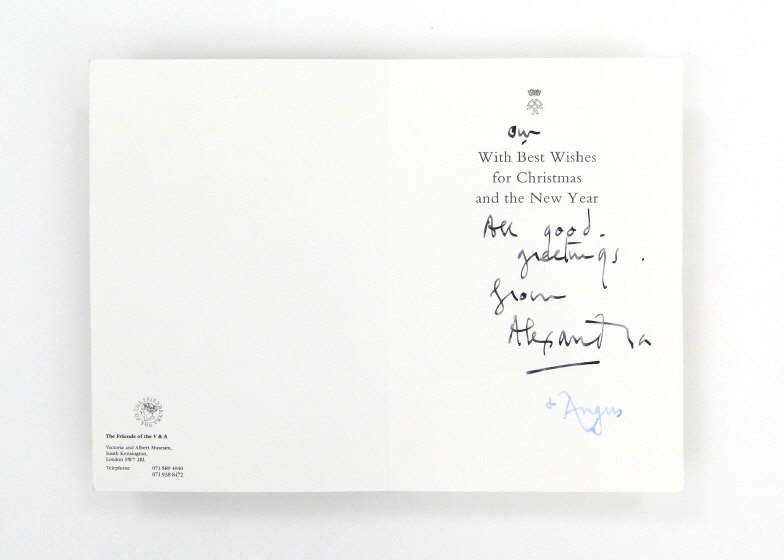 THE FRIENDS OF THE V&A
The Friends of the V & A
Victoria and Albert Museum,
South Kensington,
London SW7 2RL
Telephone 071-589 4040
071-938 8472
our
With Best Wishes
for Christmas
and the New Year
All good.
greetings.
from
Alexandra
+ Angus